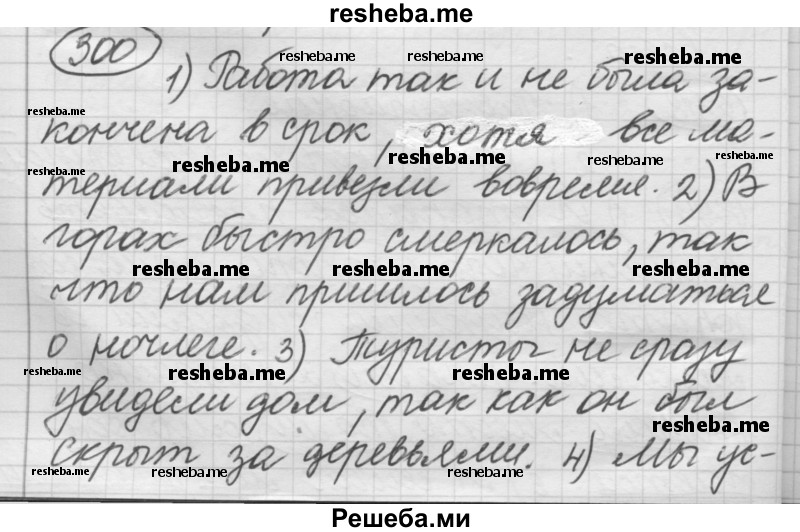 resheba.me
300
resheba.me resheba.me resheba.me
1) Работа так и не была за-
resheba.me resheba.me
кончена в срок, хотя все ма-
resheba.me resheba.me resheba.me resheba.me
териали привезли вовремя. 2) В
горах быстро смеркалось, так
resheba.me resheba.me resheba.me
что нам пришлось задуматься
о ночлеге. 3) Туристы не сразу
resheba.me resheba.me resheba.me
увидели дом, так как он был
resheba.me
скрыт за деревьями. 4) Мы ус-
resheba.me resheba.me resheba.me resheba.me
Решеба.ми